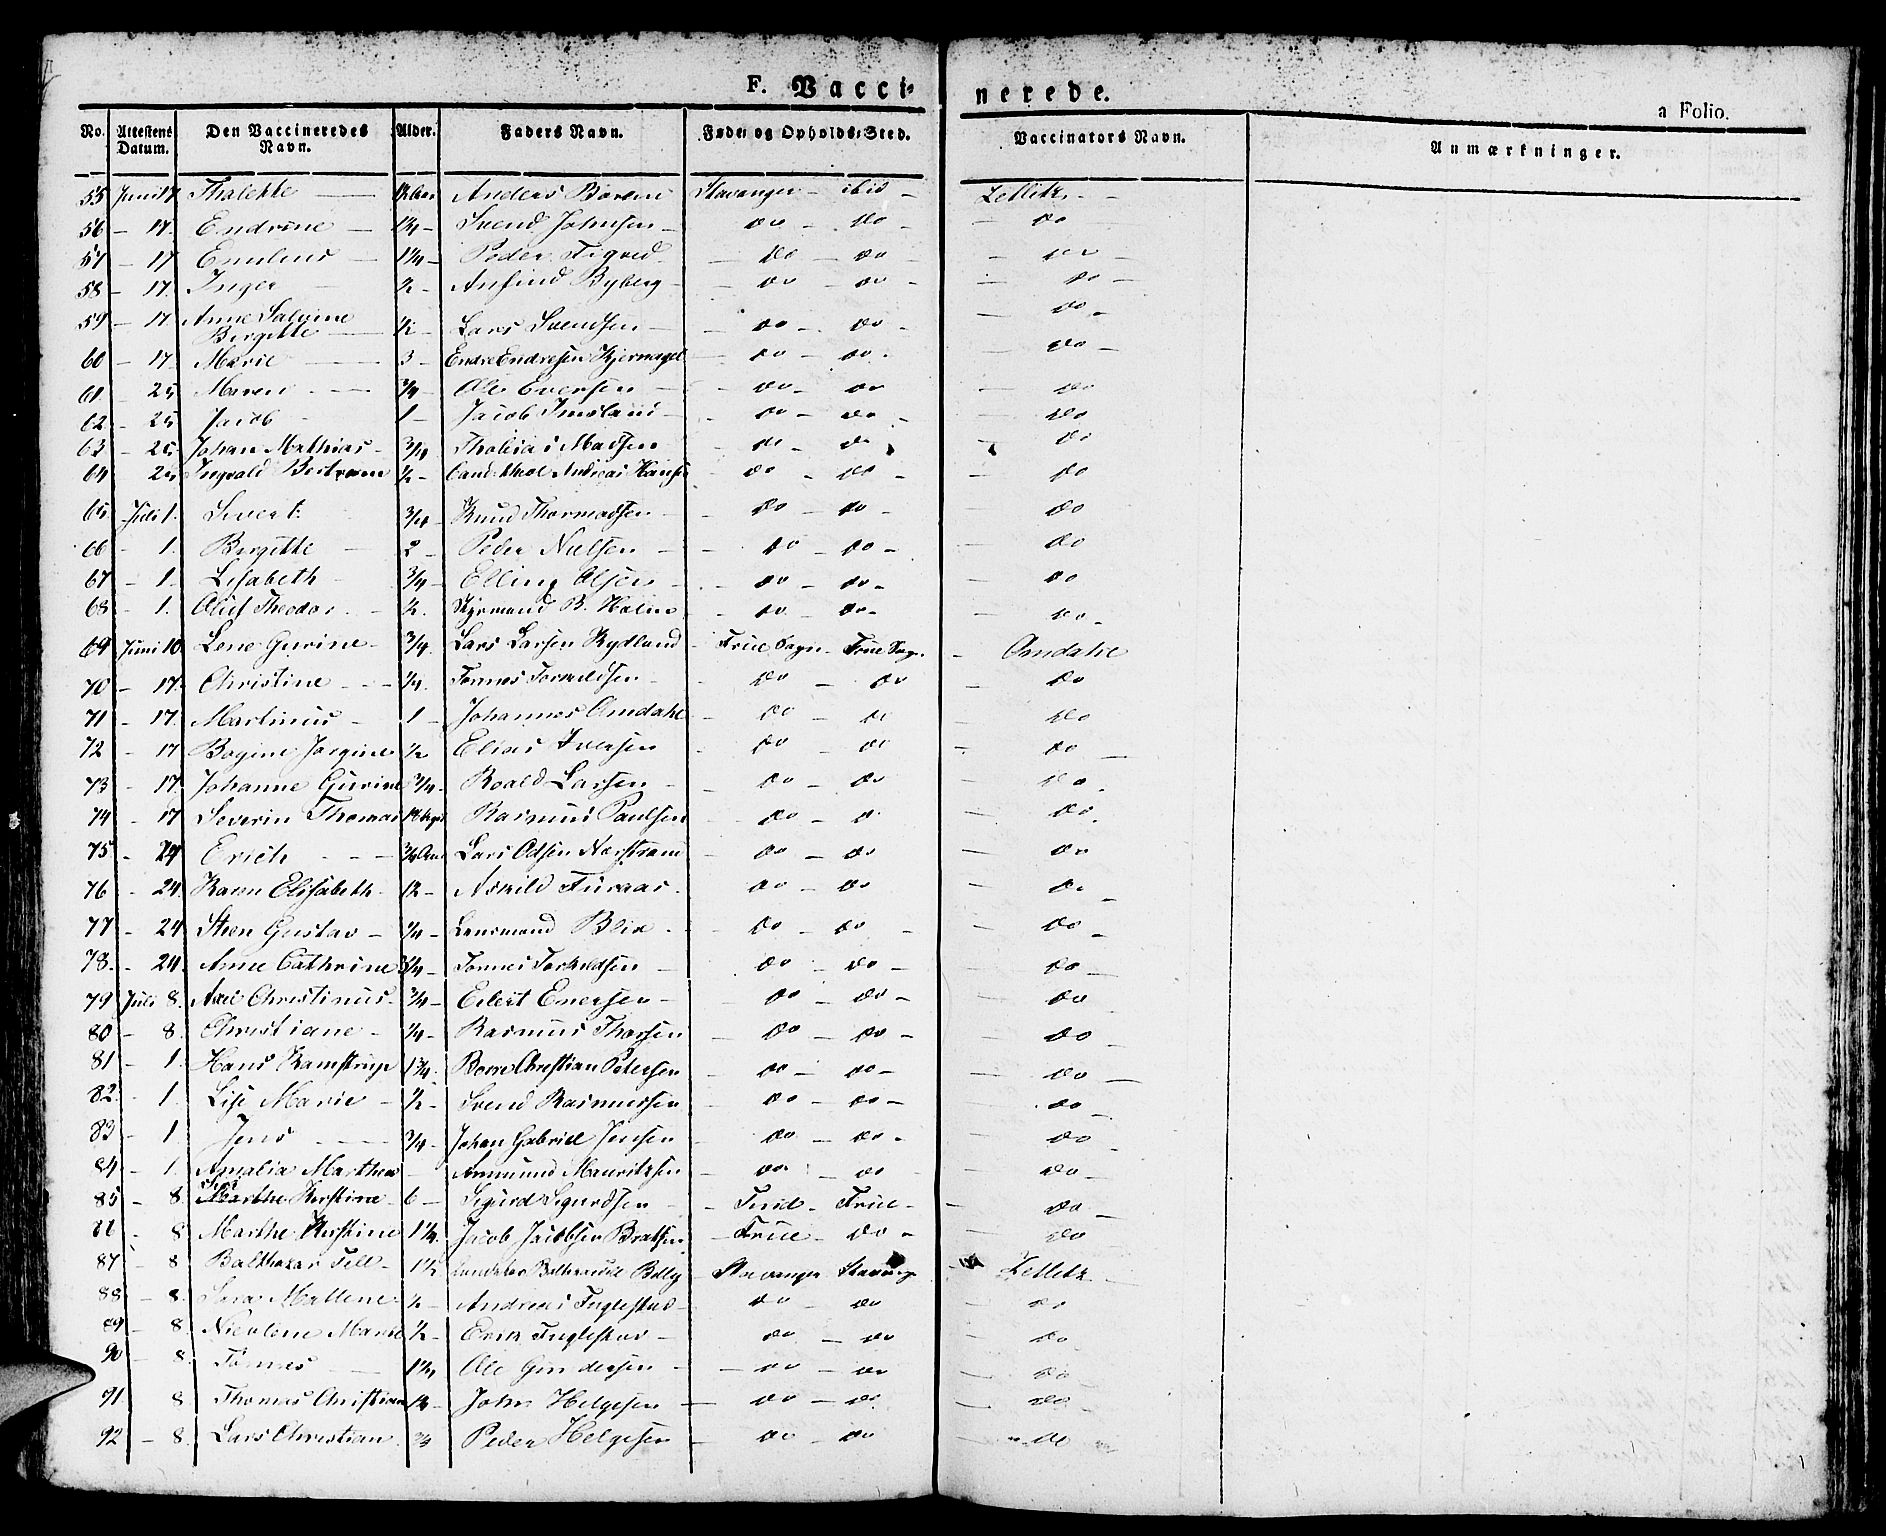 F. Vaccinerede.
a Folio.
No. Attestens Datum. Den Vaccineredes Navn. Alder. Faders Navn. Føde- og Opholds-Sted. Vaccinators Navn. Anmærkninger.
55 Juni 17 Thalette Anders Stavanger - ibid - Zetlitz -
56 - 17. Endrine - 1/4 - Svend Johnsen - do - do - - do
57 - 17 - 1 1/4 - Peder Tigved - do - do - - do -
58 - 17. Inger 1/2 - Anfind Byberg - do - do - - do -
59 - 17 Anne Salvine Birgitte 1/2 - Lars Svendsen - - do - do - - do -
60 - 17. Marie - 3 - Endre Endresen Kjernagel - do - do - - do -
61 - 25 Maren - 3/4 - Ole Eversen - - do - do - do
62 - 25 Jacob - 1 - Jacob Imsland - - do - do - - do
63 - 25 Johan Mathias - 3/4 Tholias Madsen - do - do - do
64 25 Ingvald Bertram 1/2 - Cand. theol Andreas Hansen - do - do - do
65 Juli 1. Sivert 3/4 - Knud Thormodsen - - do - do - do
66 - 1. Birgitte - 2 - Peder Nielsen - - do - do - - do
67 - 1. Lisabeth 3/4 - Elling Olsen - - do - do - - do
68 - 1. Oluf Theodor - 1/2. B. Holm - do - do - - do -
69 Juni 10 Lene Gurine - 3/4. Lars Larsen Rydland - Frue Sogn - Frue Sogn - Omdahl
70 - 17. Christine - 1/4. Tønnes Torkildsen - do - do - do
71 - 17. Martinus - 1 - Johannes Omdahl - do - do - do
72 - 17 Bogine Jørgine 1/2 Elias Iversen - do - do - do -
73 - 17. Johanne Gurine 3/4 - Roald Larsen - - do - do - do -
74 - 17 Severin Thomas Rasmus Paulsen - do - do - do.
75 - 24 Erich - 3/4 Aar Lars Odsen Norstrand - do - do - do
76 - 24. Karen Elisabeth - 1/2 - Askild - do - do - do -
77 - 24 Steen Gustav - 1/4 - Lensmand Blix - - do - do - - do -
78. - 24. Anne Cathrine 3/4 - Tønnes Torkildsen - do - do - - do -
79 Juli 8. Axel Christinus - 3/4 - Eilert Enersen - - do - do - - do
80 - 8. Christiane - 1/4 - Rasmus Thorsen - do - do - - do -
81 - 1. Hans Kamstrup 1 3/4. Børre Christian Petersen - do - do - - do -
82. - 1. Lise Marie - 1/2 - Svend Rasmussen - do - do - - do -
83 - 1 Jens - 3/4 - Johan Gabriel Jensen - do - do - - do
84 - 1. Amalia Marthea - Asmund Mauritzsen - do - do - do -
85 - 8 Kirstine - 6 - Sigurd Sigurdsen - - Frue - Frue - - do -
86 - 8 Marthe Kirstine 1 1/4. Jacob Jacobsen - Frue - do - - do
87 - 8 Balthazar Tell - 1 1/2 - Stavanger Stavanger - Zetlitz -
88 - 8. Sara Mallene 1/2 - Andreas Fuglestad - - do - do - do
89 - 8. Nicoline Marie 1/2 - Erik Fuglestad - do - do - do
90 - 8. Tønnes - 1 1/2 Ole Gundersen - - do - do - do
91 8 Thomas Christian John Helgesen - do - do - do
92 - 8. Lars Christian 3/4 - Peder Helgesen - do - do - do